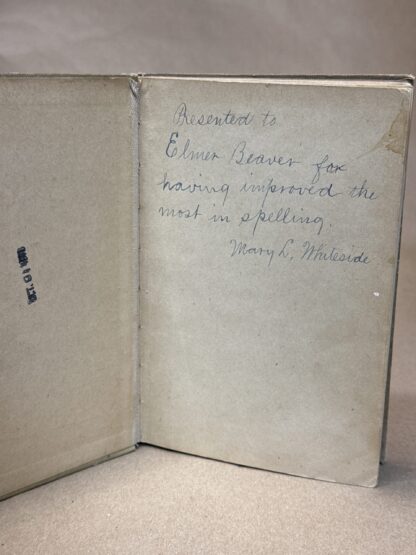 Presented to
Elmer Beaver for
having improved the
most in spelling.
Mary L. Whiteside